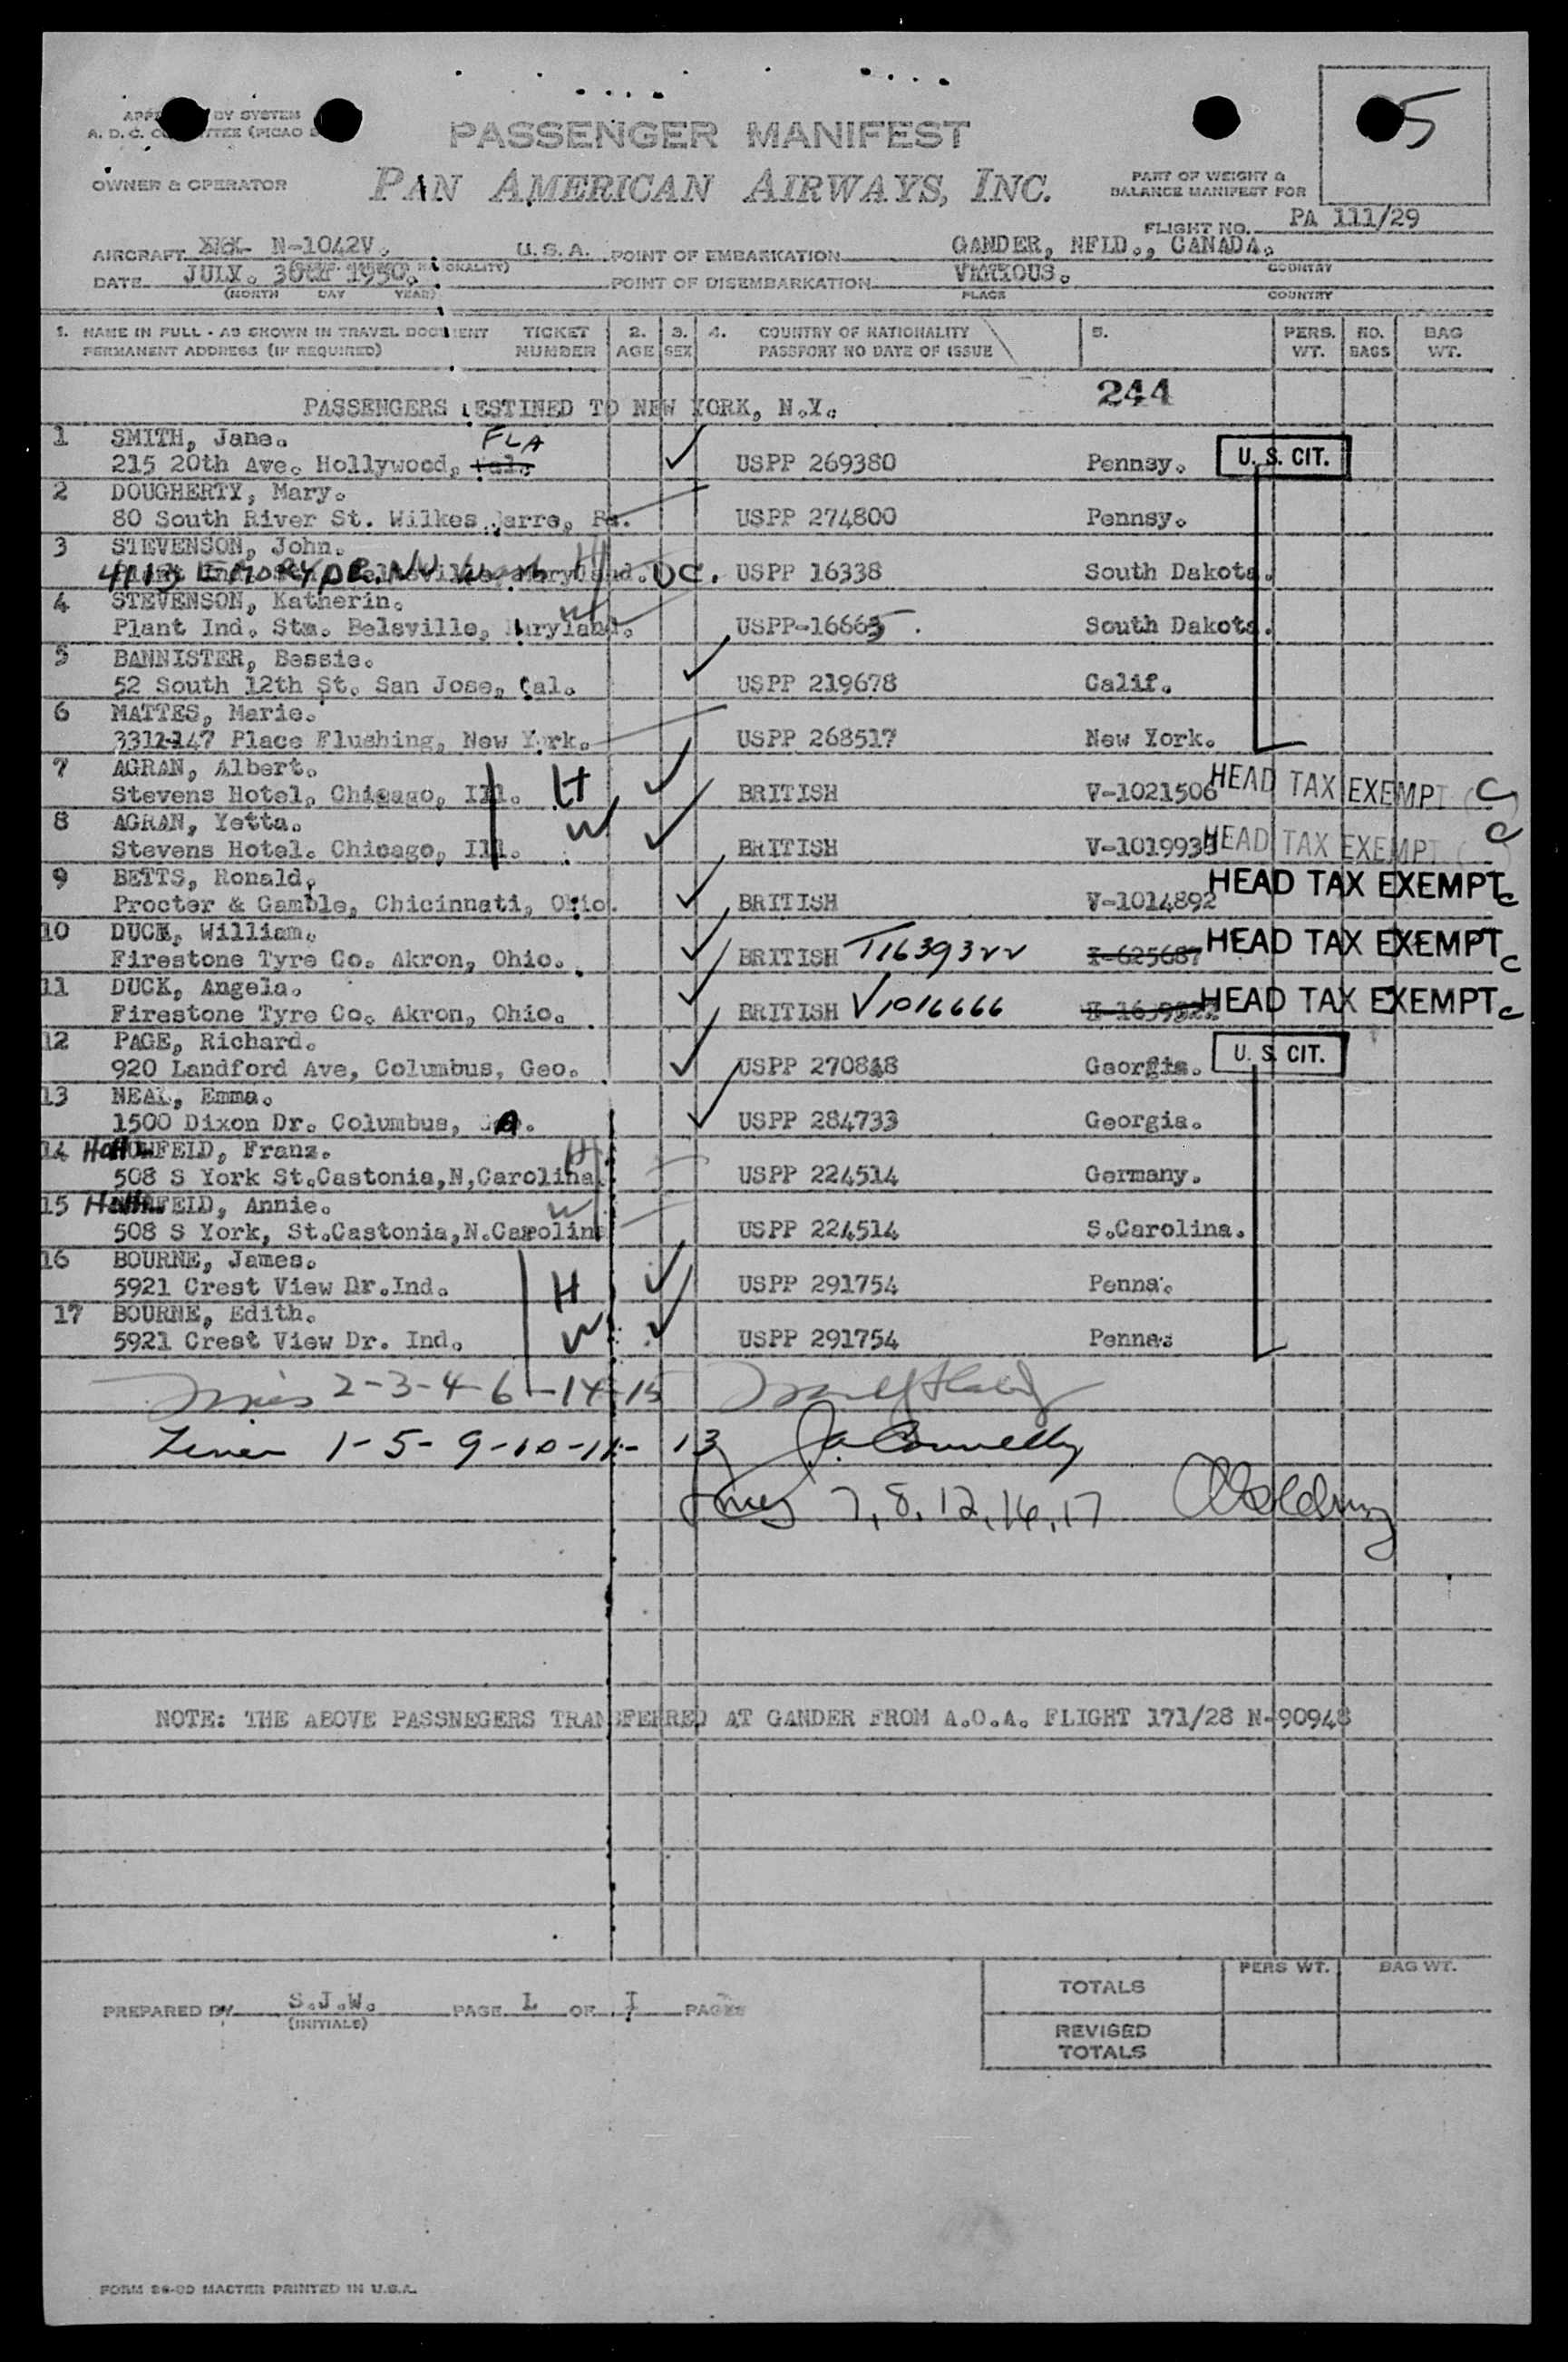 5
PASSENGER MANIFEST
OWNER & OPERATOR
PAN AMERICAN AIRWAYS, INC.
PART OF WEIGHT &
BALANCE MANIFEST FOR
FLIGHT NO. PA 111/29
AIRCRAFT N-1042V. U.S.A. POINT OF EMBARKATION GANDER, NFLD., CANADA.
COUNTRY
DATE JULY. 1950. POINT OF DISEMBARKATION VARIOUS.
(MONTH DAY YEAR) PLACE COUNTRY
1. NAME IN FULL - AS SHOWN IN TRAVEL DOCUMENT TICKET 2. 3. 4. COUNTRY OF NATIONALITY 5. PERS. NO. BAG
PERMANENT ADDRESS (IF REQUIRED) NUMBER AGE SEX PASSPORT NO DATE OF ISSUE WT. BAGS WT.
244
PASSENGERS DESTINED TO NEW YORK, N.Y.
1 SMITH, Jane. FLA
215 20th Ave. Hollywood, Cal. USPP 269380 Pennsy. U. S. CIT.
2 DOUGHERTY, Mary.
80 South River St. Wilkes Barre, Pa. USPP 274800 Pennsy.
3 STEVENSON, John. H
4113 EMORY DR. NW Wash DC. USPP 16338 South Dakota.
4 STEVENSON, Katherin. W
Plant Ind. Stn. Belsville, Maryland. USPP-16665 South Dakota.
5 BANNISTER, Bessie.
52 South 12th St. San Jose, Cal. USPP 219678 Calif.
6 MATTES, Marie.
3312-147 Place Flushing, New York. USPP 268517 New York.
7 AGRAN, Albert.
Stevens Hotel, Chicago, Ill. H BRITISH V-1021506 HEAD TAX EXEMPT C
8 AGRAN, Yetta.
Stevens Hotel. Chicago, Ill. W BRITISH V-1019938 HEAD TAX EXEMPT C
9 BETTS, Ronald.
Procter & Gamble, Chicinnati, Ohio. BRITISH V-1014892 HEAD TAX EXEMPT C
10 DUCK, William.
Firestone Tyre Co. Akron, Ohio. BRITISH T1639322 I-625687 HEAD TAX EXEMPT C
11 DUCK, Angela.
Firestone Tyre Co. Akron, Ohio. BRITISH V1016666 HEAD TAX EXEMPT C
12 PAGE, Richard.
920 Landford Ave, Columbus, Geo. USPP 270848 Georgia. U. S. CIT.
13 NEAL, Emma.
1500 Dixon Dr. Columbus, USPP 284733 Georgia.
14 FELD, Franz. H
508 S York St.Castonia,N,Carolina. USPP 224514 Germany.
15 FELD, Annie. W
508 S York, St.Castonia,N.Carolina USPP 224514 S.Carolina.
16 BOURNE, James.
5921 Crest View Dr.Ind. H USPP 291754 Penna.
17 BOURNE, Edith.
5921 Crest View Dr. Ind. W USPP 291754 Penna.
2-3-4-6-14-15
1-5-9-10-11-13 J.A. Connelly
7, 8, 12, 16, 17
NOTE: THE ABOVE PASSNEGERS TRANSFERRED AT GANDER FROM A.O.A. FLIGHT 171/28 N-90948
PREPARED BY S.J.W. PAGE 1 OF 1 PAGES
(INITIALS)
PERS WT. BAG WT.
TOTALS
REVISED
TOTALS
MASTER PRINTED IN U.S.A.